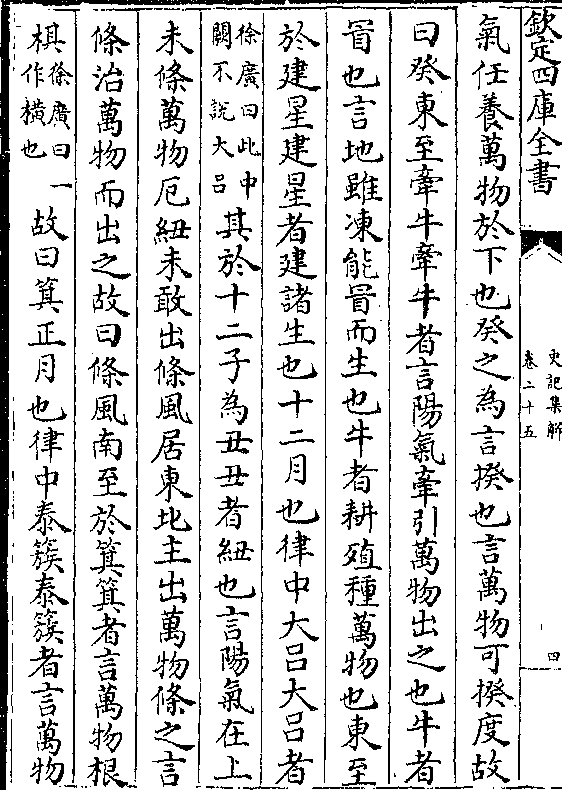 欽定四庫全書
史記集解
卷二十五
四
氣任養萬物於下也癸之為言揆也言萬物可揆度故
曰癸東至牽牛牽牛者言陽氣牽引萬物出之也牛者
冒也言地雖凍能冒而生也牛者耕殖種萬物也東至
於建星建星者建諸生也十二月也律中大呂大呂者
徐廣曰此中
闕不說大呂
其於十二子為丑丑者紐也言陽氣在上
未條萬物厄紐未敢出條風居東北主出萬物條之言
條治萬物而出之故曰條風南至於箕箕者言萬物根
棋
徐廣曰一
作橫也
故曰箕正月也律中泰簇泰簇者言萬物